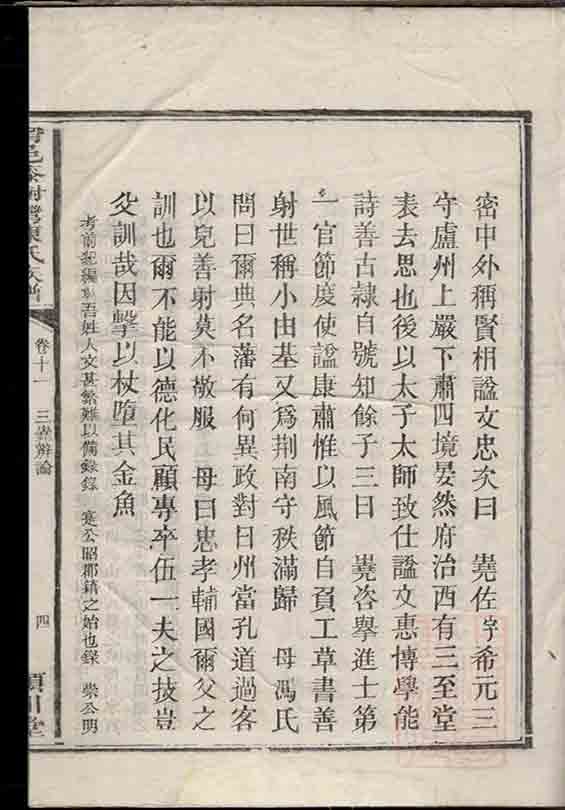 密中外稱賢相諡文忠次曰 堯佐字希元三
守盧州上嚴下肅四境晏然府治西有三至堂
表去思也後以太子太師致仕諡文惠博學能
詩善古隸自號知餘子三曰 堯咨擧進士第
一官節度使諡康肅惟以風節自負工草書善
射世稱小由基又爲荆南守秩滿歸 母馮氏
問曰爾典名藩有何異政對曰州當孔道過客
以兒善射莫不敬服 母曰忠孝輔國爾父之
訓也爾不能以德化民顧專卒伍一夫之技豈
父訓哉因擊以杖墮其金魚
考前紀編 吾姓人文甚繁難以備錄錄 寔公昭郡鎮之始也錄 崇公明
氏族譜 卷十一 三堯辨論 四 潁川堂